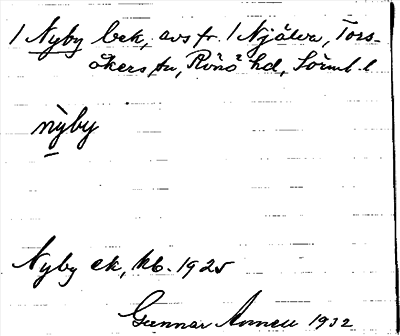 1 Nyby bek, avs fr. 1 Njälva, Tors-
åkers sn, Rönö hd, Sörml. l
nỳby
Nyby ek, kb. 1925
Gunnar 1932